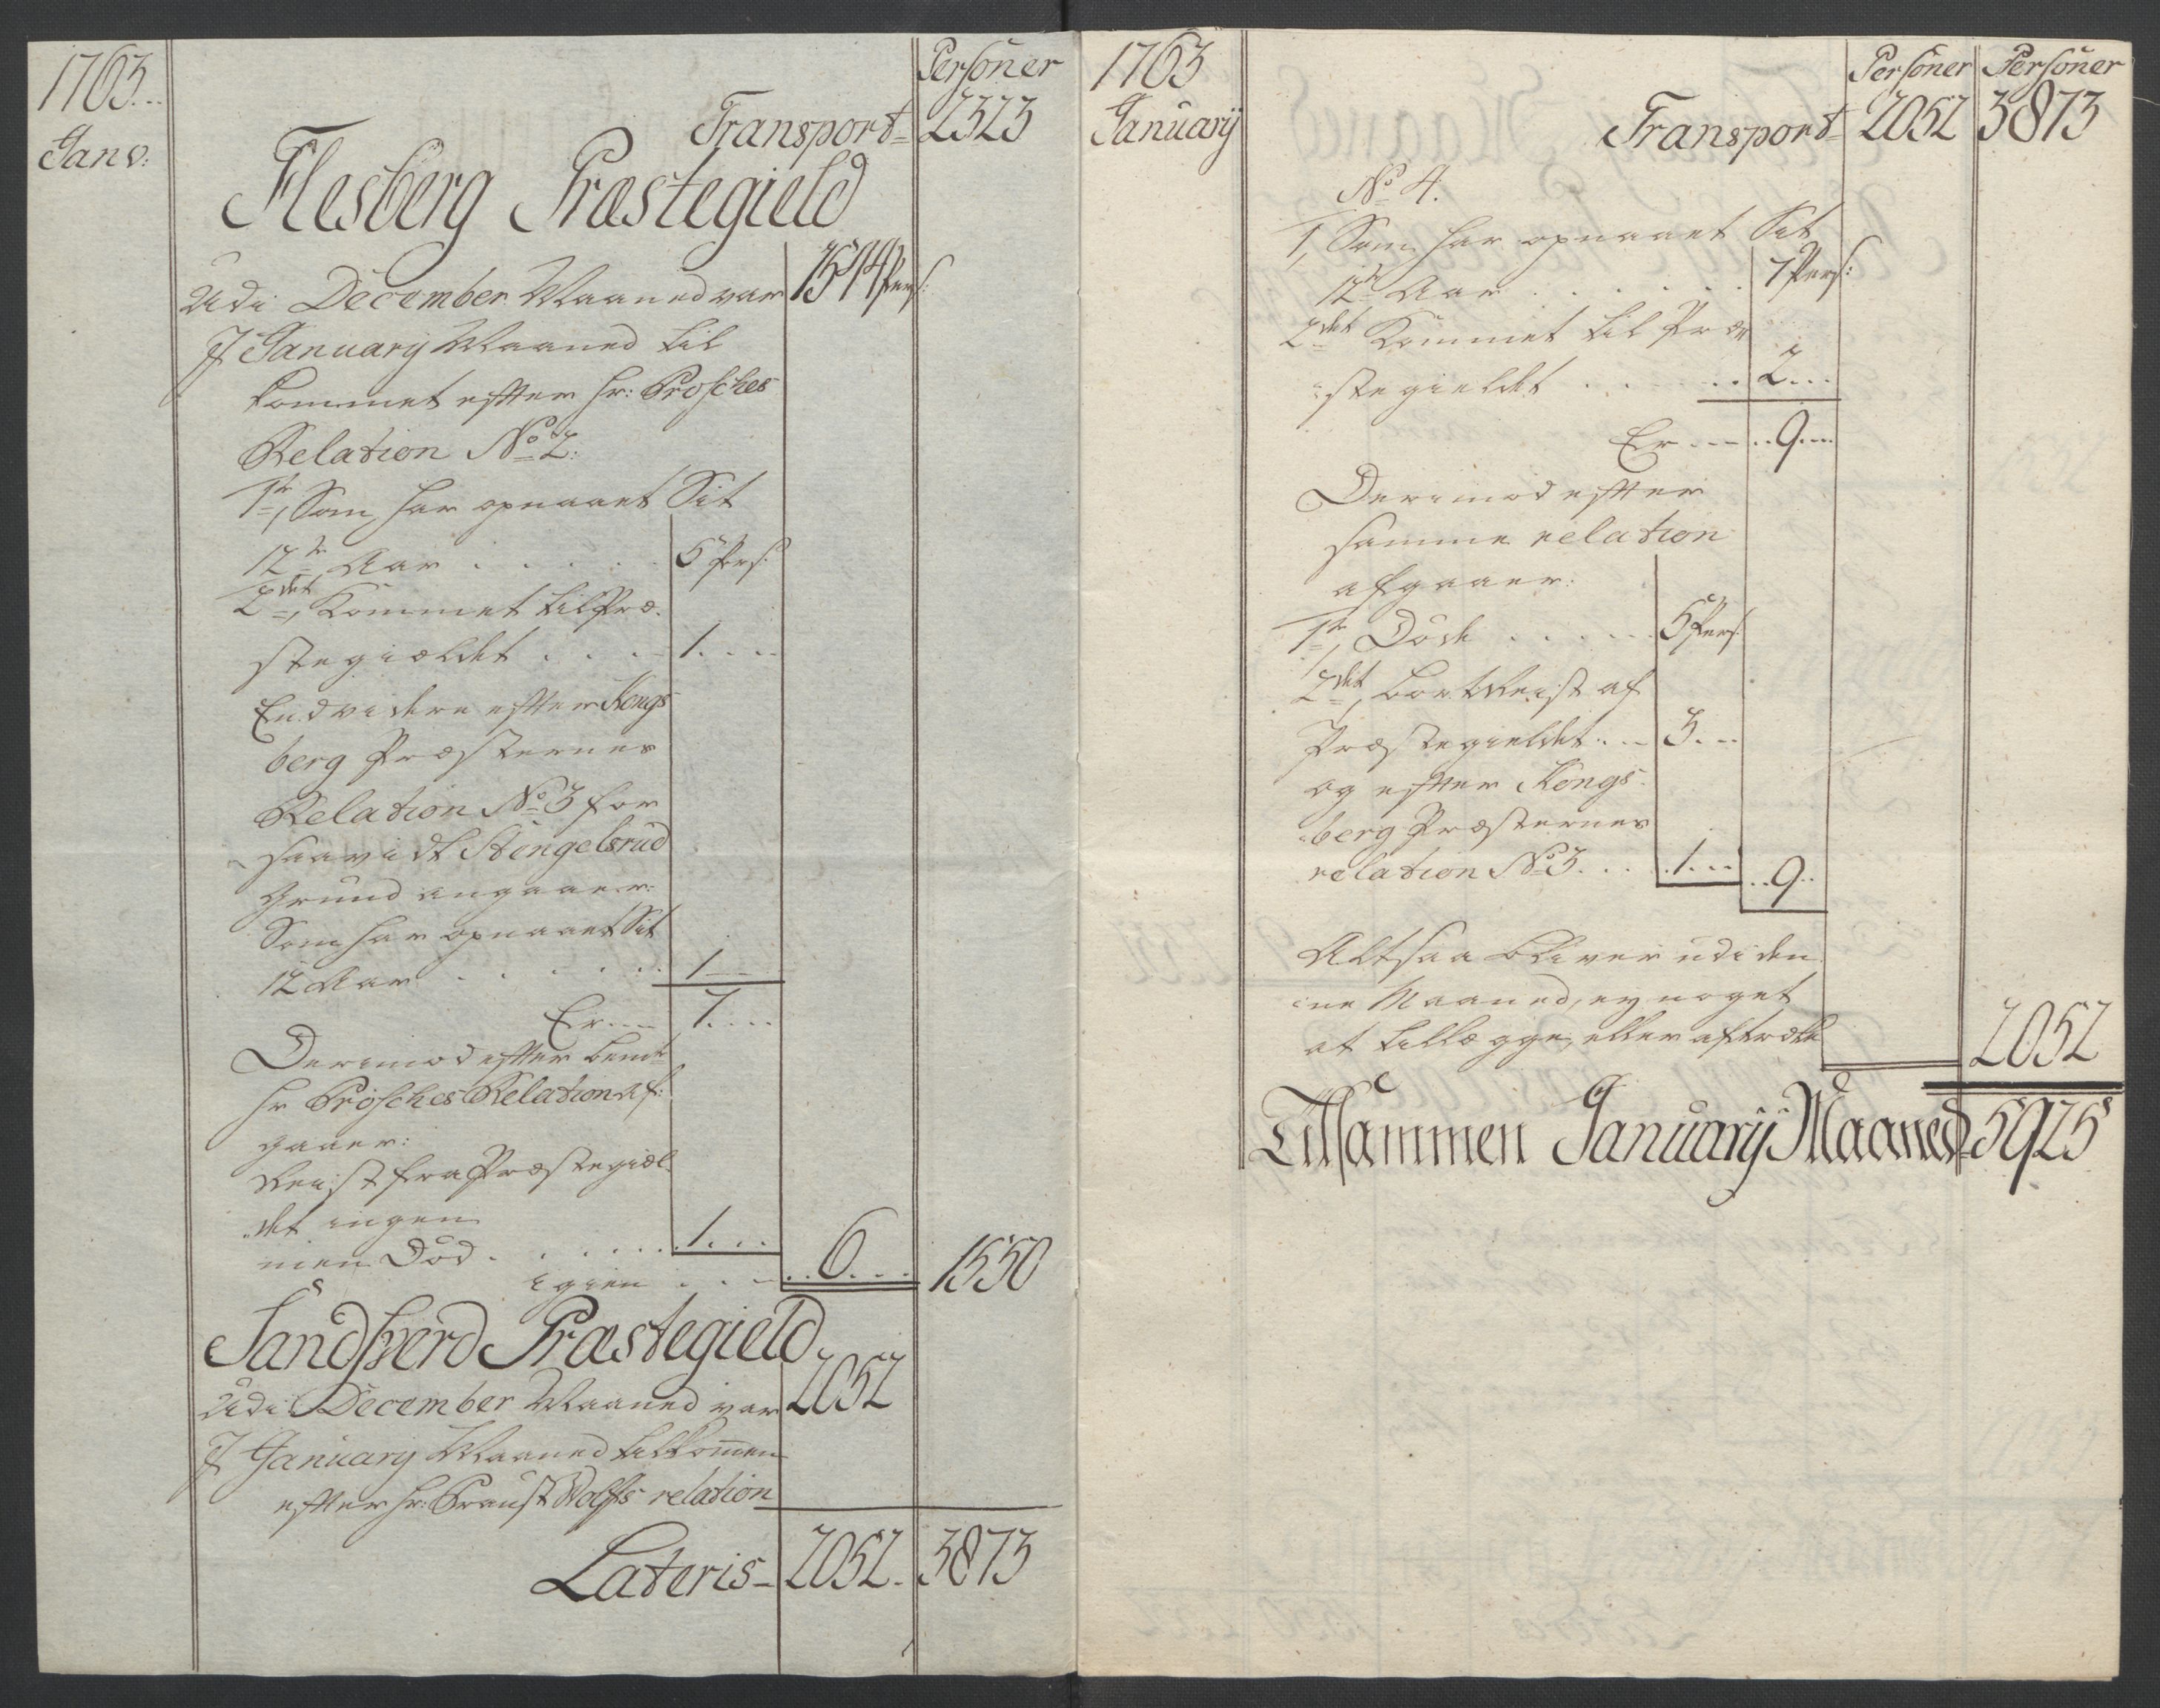 1763
Janv:
Personer
Transport 2323
Flesberg Præstegield
Udi December Maaned var 1544 Pers:
J January Maaned til
kommet effter Hr: Prosches
Relation No 2:
1te, Som har opnaaet Sit
12te Aar . . . . . 6 Pers:
2det, Kommet til Præ-
stegieldet . . . 1 . . .
Endvidere efter Kongs
berg Præsternes
Relation No 3 for
saavidt Stengelsrud
Grund angaaer:
Som har opnaaet Sit
12 Aar . . . . . . 1
Er 7 . . .
Derimod effter bemte
Hr Prosches Relation af:
gaaer:
Reist fra Præstegiel
det ingen
men Død . . . . . . 1 . . .
igien . . . 6 . . . 1550
Sandsverd Præstegield
Udi December Maaned var 2052
J January Maaned tilkommen
effter Hr: Proust Wolffs relation
Lateris 2052 . 3873
1763
January
Personer Personer
Transport 2052 3873
No 4.
1, Som har opnaaet Sit
12te Aar . . . . . . 7 Pers:
2det Kommet til Præ
stegieldet . . . . . 2 . . .
Er . . 9 . . .
Derimod effter
samme relation
afgaaer:
1te, Døde . . . . . 5 Pers:
2det, bortReist af
Præstegieldet . . 3 . . .
og effter Kongs-
berg Præsternes
relation No 3 . . . 1 . . . 9 . .
Altsaa bliver udi den
ne Maaned, ey noget
at tillægge, eller aftrække 2052
Tilsammen January Maaned 5925